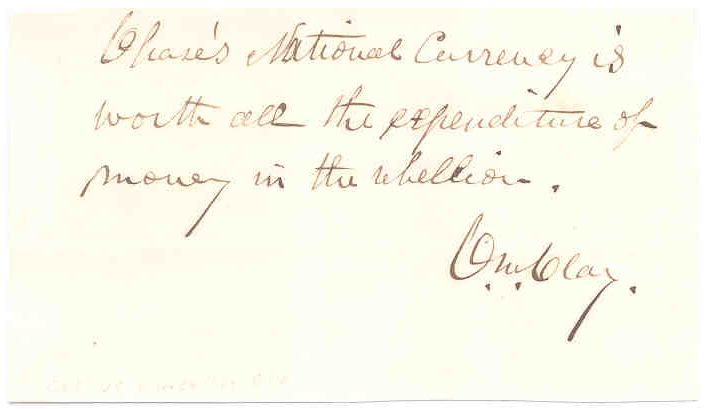 Chase's National Currency is
worth all the expenditure of
money in the rebellion.
C. M. Clay.